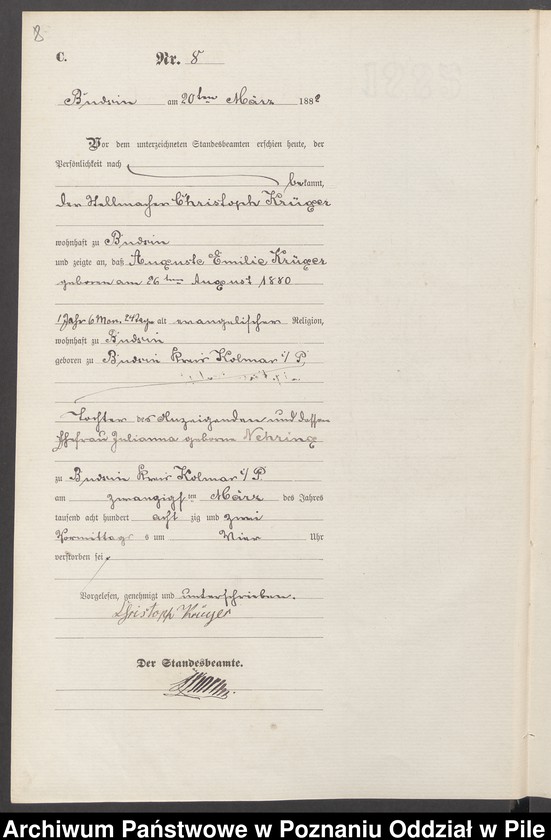 8
C.
Nr. 8
Budsin am 20ten März 1882
Vor dem unterzeichneten Standesbeamten erschien heute, der
Persönlichkeit nach
bekannt,
der Stellmacher Christoph Krüger
wohnhaft zu Budsin
und zeigte an, daß Auguste Emilie Krüger
geboren am 26ten August 1880
1 Jahr 6 Mon. 24 Tage alt evangelischer Religion,
wohnhaft zu Budsin
geboren zu Budsin Kreis Kolmar i/P.
Tochter des Anzeigenden und dessen
Ehefrau Julianna geborne Nehring
zu Budsin Kreis Kolmar i/P.
am zwanzigsten März des Jahres
tausend acht hundert acht zig und zwei
Vormittags um Vier Uhr
verstorben sei.
Vorgelesen, genehmigt und unterschrieben.
Christoph Krüger
Der Standesbeamte.
Archiwum Państwowe w Poznaniu Oddział w Pile